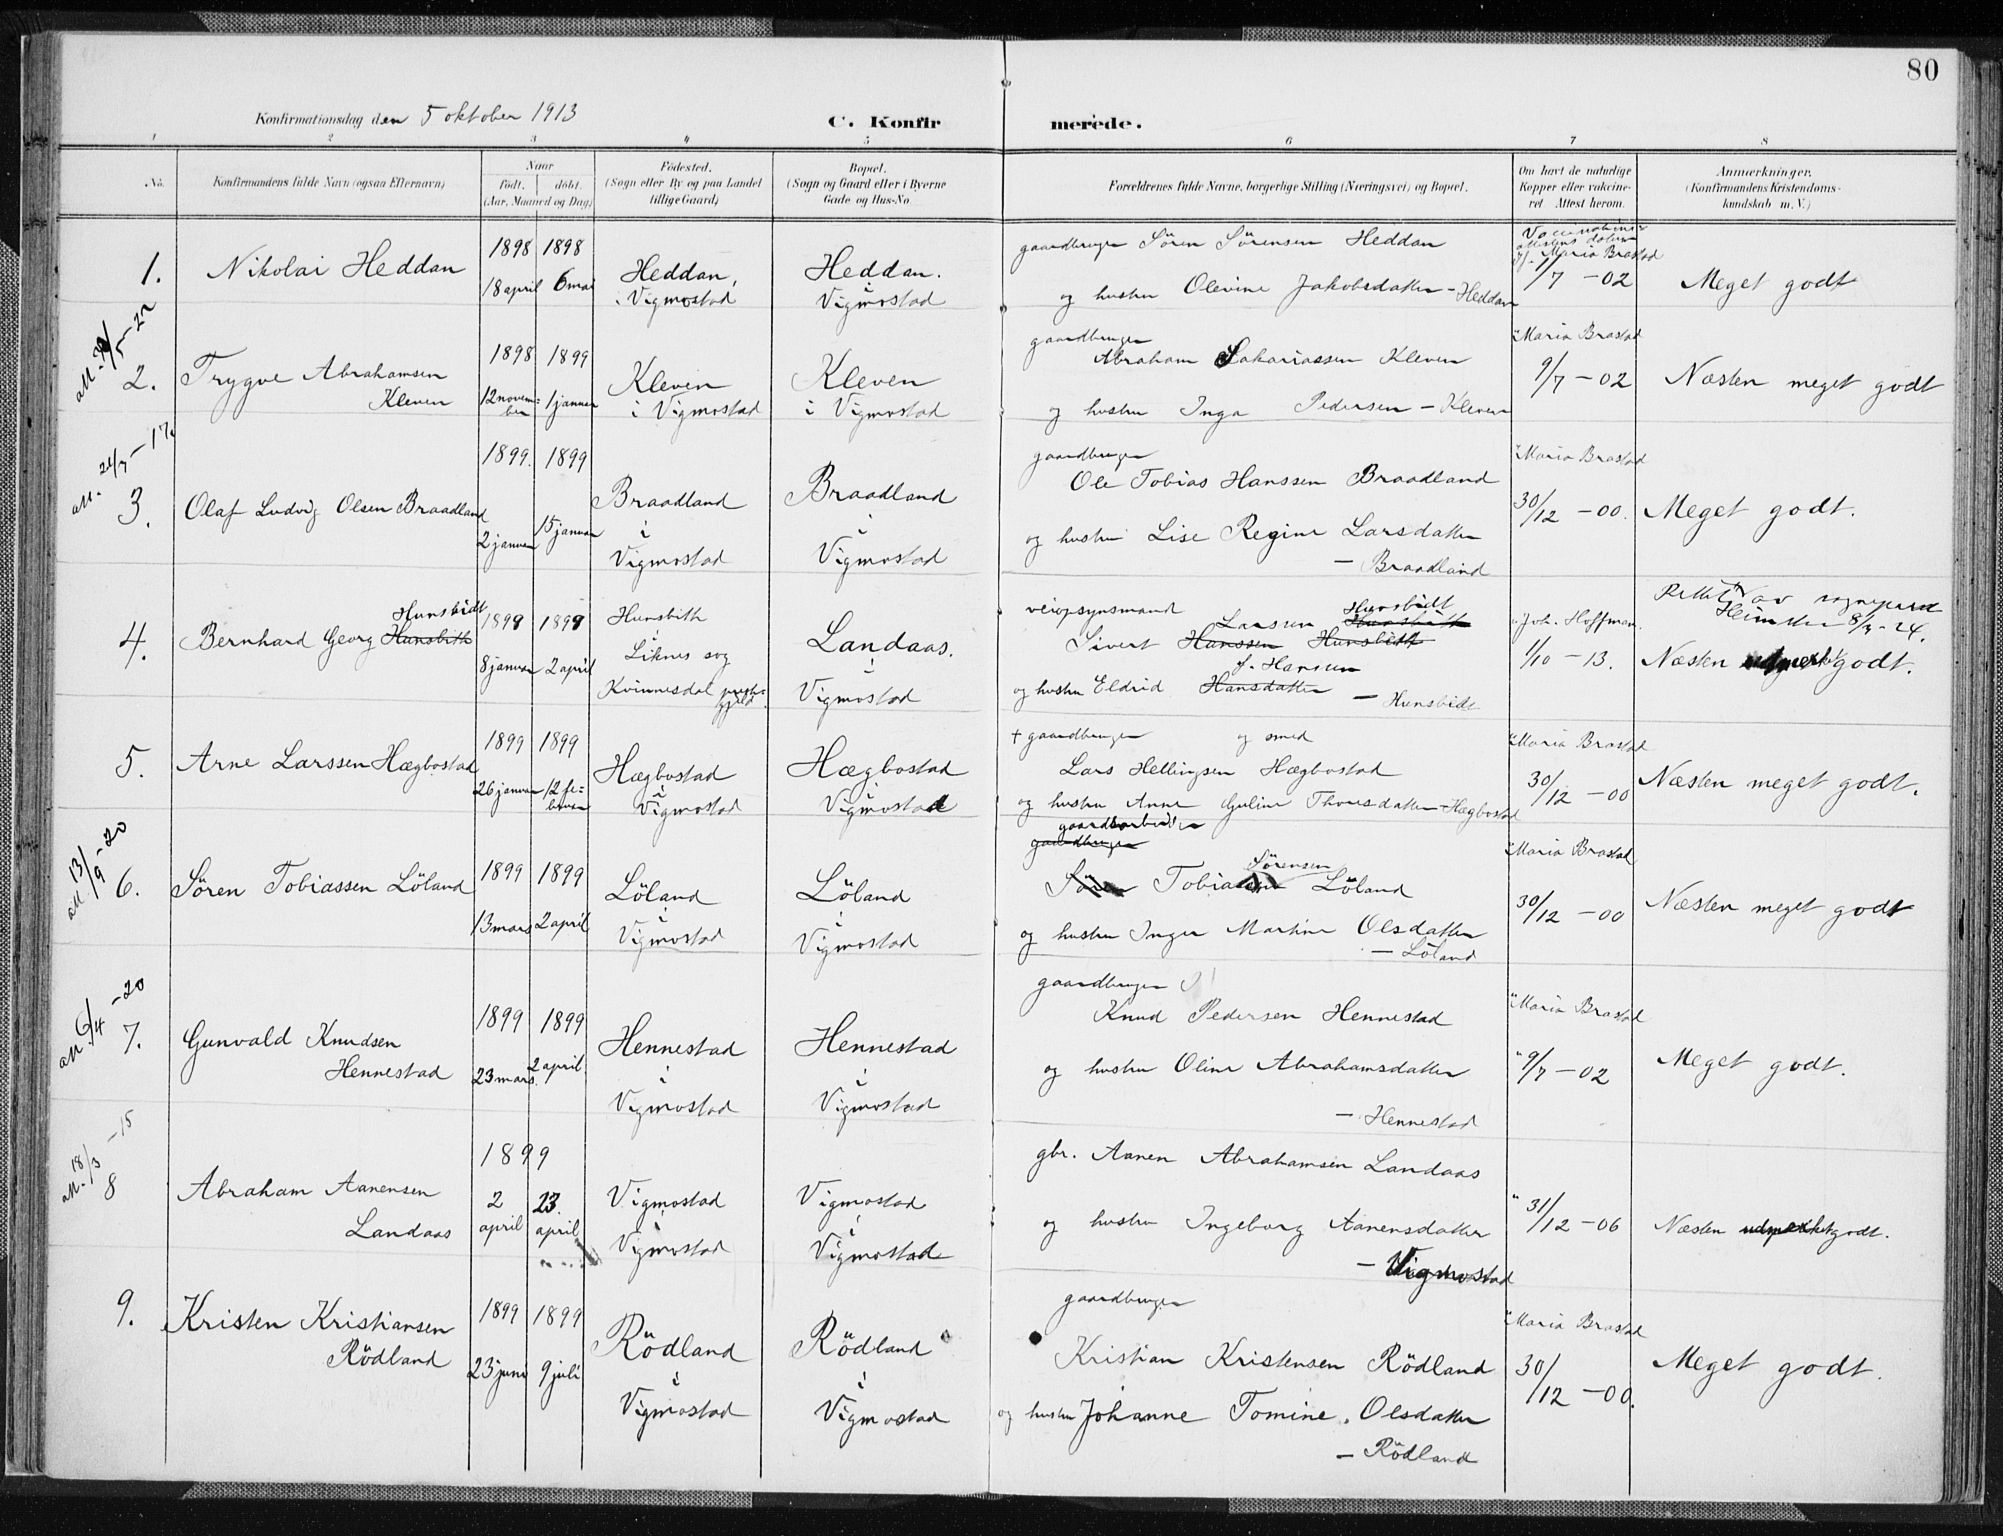 80
Konfirmationsdag den 5 oktober 1913
C. Konfirmerede.
1 2 3 4 5 6 7 8
No.
Konfirmandens fulde Navn (ogsaa Efternavn)
Naar
født. døbt.
(Aar, Maaned og Dag)
Fødested.
(Sogn eller By og paa Landet
tillige Gaard)
Bopæl.
(Sogn og Gaard eller i Byerne
Gade og Hus-No.
Forældrenes fulde Navne, borgerlige Stilling (Næringsvei) og Bopæl.
Om havt de naturlige
Kopper eller vakcine-
ret Attest herom.
Anmærkninger.
(Konfirmandens Kristendoms-
kundskab m. V.)
1.
Nikolai Heddan
1898 1898
18 april 6 mai
Heddan,
i Vigmostad
Heddan.
i
Vigmostad
gaardbruger Sören Sörensen Heddan
og hustru Olevine Jakobsdatter - Heddan
Maria Brastad
1/7 - 02
Meget godt
2.
Trygve Abrahamsen
Kleven
1898 1899
12 novem=
ber 1 januar
Kleven
i Vigmostad
Kleven
i Vigmostad
gaardbruger
Abraham Sakariassen Kleven
og hustru Inga Pedersen - Kleven
" Maria Brastad
9/7 - 02
Næsten meget godt
3.
Olaf Ludvig Olsen Braadland
1899. 1899
2 januar 15 januar
Braadland
i
Vigmostad
Braadland
i
Vigmostad
gaardbruger
Ole Tobias Hanssen Braadland
og hustru Lise Regine Larsdatter
- Braadland
" Maria Brastad
30/12 - 00.
Meget godt.
4.
Hunsbidt
Bernhard Georg Hunsbith
1899 1899
8 januar 2 april
Hunsbith
i
Liknes sog
Kvinnesdal
Landaas.
i
Vigmostad
veiopsynsmand
Larsen Hunsbidt
Sivert Hanssen Hunsbith
f. Hansen
og hustru Eldrid Hansdatter - Hunsbidt
" Joh. Hoffman.
1/10 - 13.
Rettet av
8/3 - 24.
Næsten godt.
5.
Arne Larssen Hægbostad
1899 1899
26 januar 12 fe=
bruar
Hægbostad
i
Vigmostad
Hægbostad
i
Vigmostad
+ gaardbruger og smed
Lars Hellingsen Hægbostad
og hustru Anne Guline Thoresdatter - Hægbostad
" Maria Brastad
30/12 - 00
Næsten meget godt.
M 13/9 - 20
6.
Sören Tobiassen Löland
1899 1899
13 mars 2 april
Löland
i
Vigmostad
Löland
i
Vigmostad
gaardbruger
Sörensen
Sören Tobias Löland
og hustru Inger Martine Olsdatter
- Löland
" Maria Brastad
30/12 - 00
Næsten meget godt
M. 6/4 - 20
7.
Gunvald Knudsen
Hennestad
1899 1899
23 mars. 2 april
Hennestad
i
Vigmostad
Hennestad
i
Vigmostad
gaardbruger
Knud Pedersen Hennestad
og hustru Oline Abrahamsdatter
- Hennestad
" Maria Brastad
" 9/7 - 02
Meget godt.
M. 18/3 - 15
8
Abraham Aanensen
Landaas
1899
2 april 23. april
Vigmostad
i
Vigmostad
Vigmostad
i
Vigmostad
gbr. Aanen Abrahamsen Landaas
og hustru Ingeborg Aanensdatter
- Vigmostad
" 31/12 - 06
Næsten udmerket godt.
9.
Kristen Kristiansen
Rödland
1899 1899
23 juni 9 juli
Rödland
i
Vigmostad
Rödland
i
Vigmostad
gaardbruger
Kristian Kristensen Rödland
og hustru Johanne Tomine Olsdatter
- Rödland
" Maria Brastad
30/12 - 00.
Meget godt.